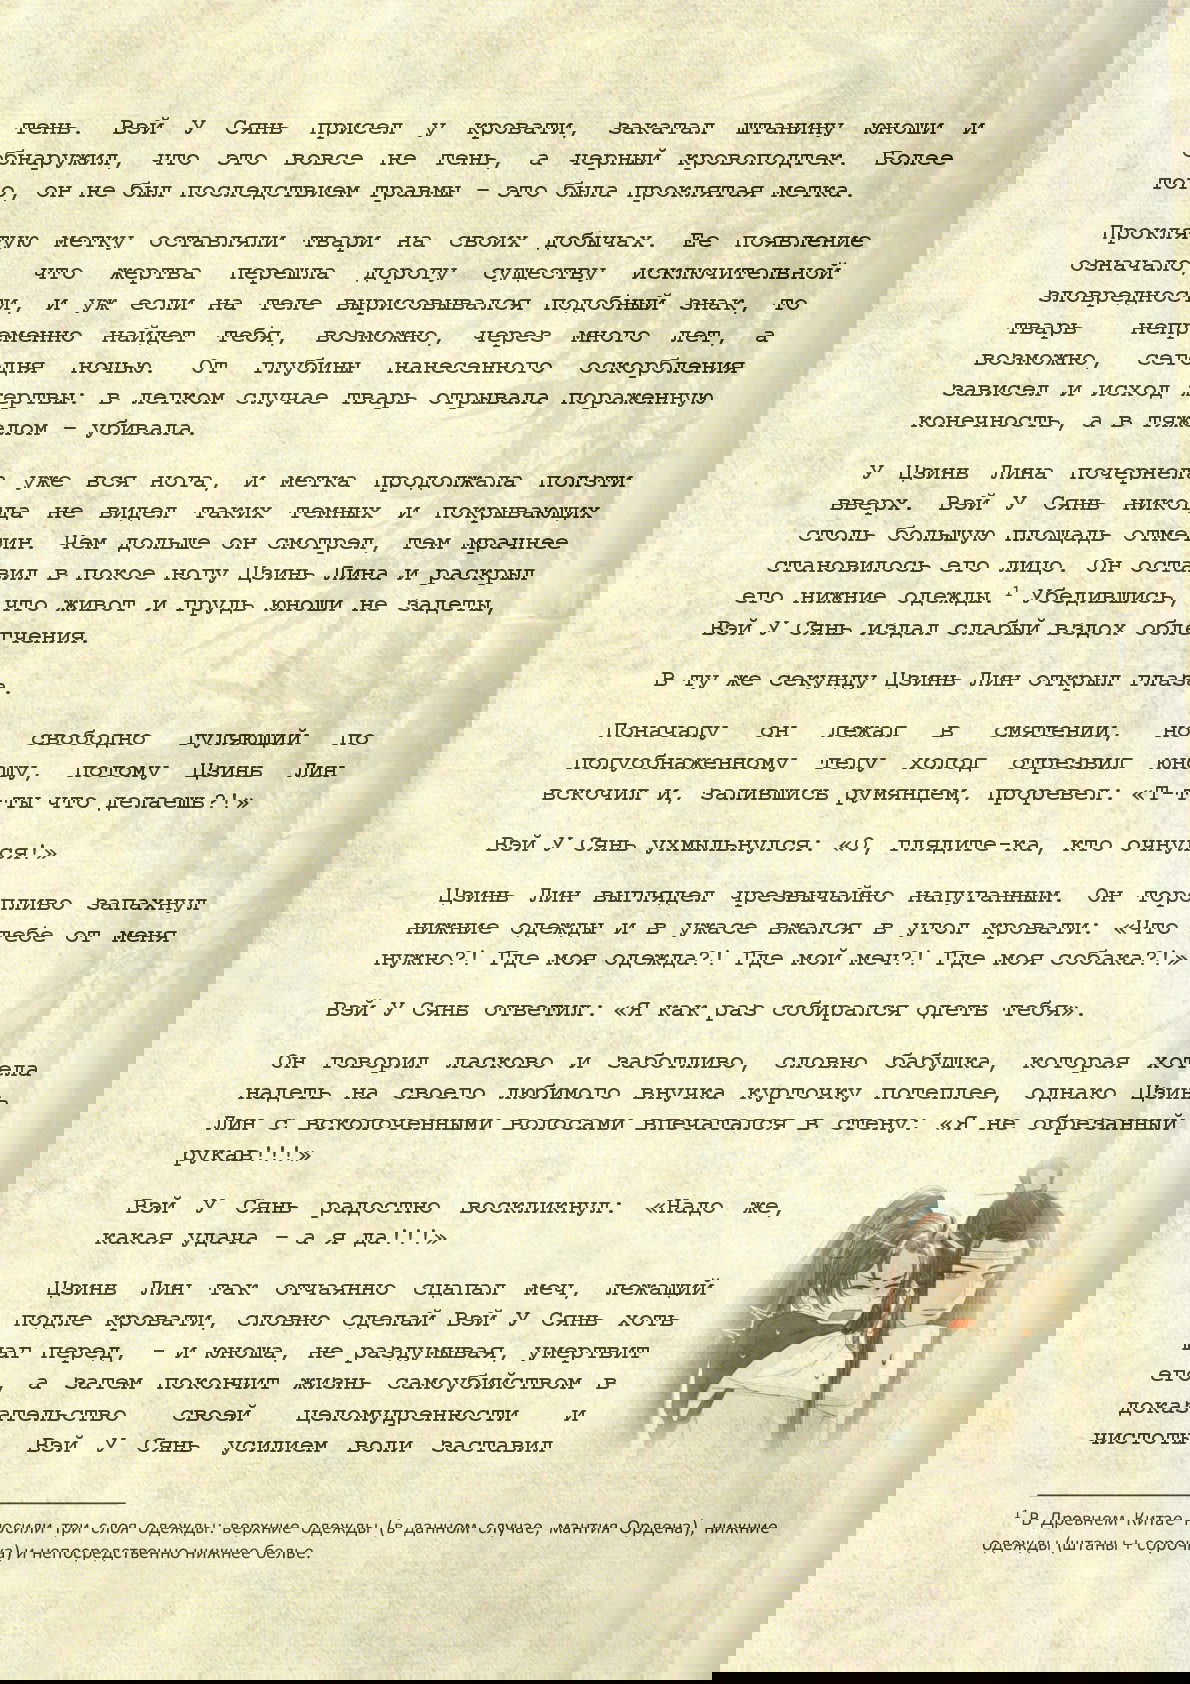 тень. Вэй У Сянь присел у кровати, закатал штанину юноши и
обнаружил, что это вовсе не тень, а черный кровоподтек. Более
того, он не был последствием травмы – это была проклятая метка.
Проклятую метку оставляли твари на своих добычах. Ее появление
означало, что жертва перешла дорогу существу исключительной
зловредности, и уж если на теле вырисовывался подобный знак, то
тварь непременно найдет тебя, возможно, через много лет, а
возможно, сегодня ночью. От глубины нанесенного оскорбления
зависел и исход жертвы: в легком случае тварь отрывала пораженную
конечность, а в тяжелом – убивала.
У Цзинь Лина почернела уже вся нога, и метка продолжала ползти
вверх. Вэй У Сянь никогда не видел таких темных и покрывающих
столь большую площадь отметин. Чем дольше он смотрел, тем мрачнее
становилось его лицо. Он оставил в покое ногу Цзинь Лина и раскрыл
его нижние одежды.¹ Убедившись, что живот и грудь юноши не задеты,
Вэй У Сянь издал слабый вздох облегчения.
В ту же секунду Цзинь Лин открыл глаза.
Поначалу он лежал в смятении, но свободно гуляющий по
полуобнаженному телу холод отрезвил юношу, потому Цзинь Лин
вскочил и, залившись румянцем, проревел: «Т-ты что делаешь?!»
Вэй У Сянь ухмыльнулся: «О, глядите-ка, кто очнулся!»
Цзинь Лин выглядел чрезвычайно напуганным. Он торопливо запахнул
нижние одежды и в ужасе вжался в угол кровати: «Что тебе от меня
нужно?! Где моя одежда?! Где мой меч?! Где моя собака?!»
Вэй У Сянь ответил: «Я как раз собирался одеть тебя».
Он говорил ласково и заботливо, словно бабушка, которая хотела
надеть на своего любимого внучка курточку потеплее, однако Цзинь
Лин с всколоченными волосами впечатался в стену: «Я не обрезанный
рукав!!!!»
Вэй У Сянь радостно воскликнул: «Надо же,
какая удача – а я да!!!»
Цзинь Лин так отчаянно сцапал меч, лежащий
подле кровати, словно сделай Вэй У Сянь хоть
шаг перед, – и юноша, не раздумывая, умертвит
его, а затем покончит жизнь самоубийством в
доказательство своей целомудренности и
чистоты. Вэй У Сянь усилием воли заставил
¹ В Древнем Китае носили три слоя одежды: верхние одежды (в данном случае, мантия Ордена), нижние
одежды (штаны + сорочка) и непосредственно нижнее белье.